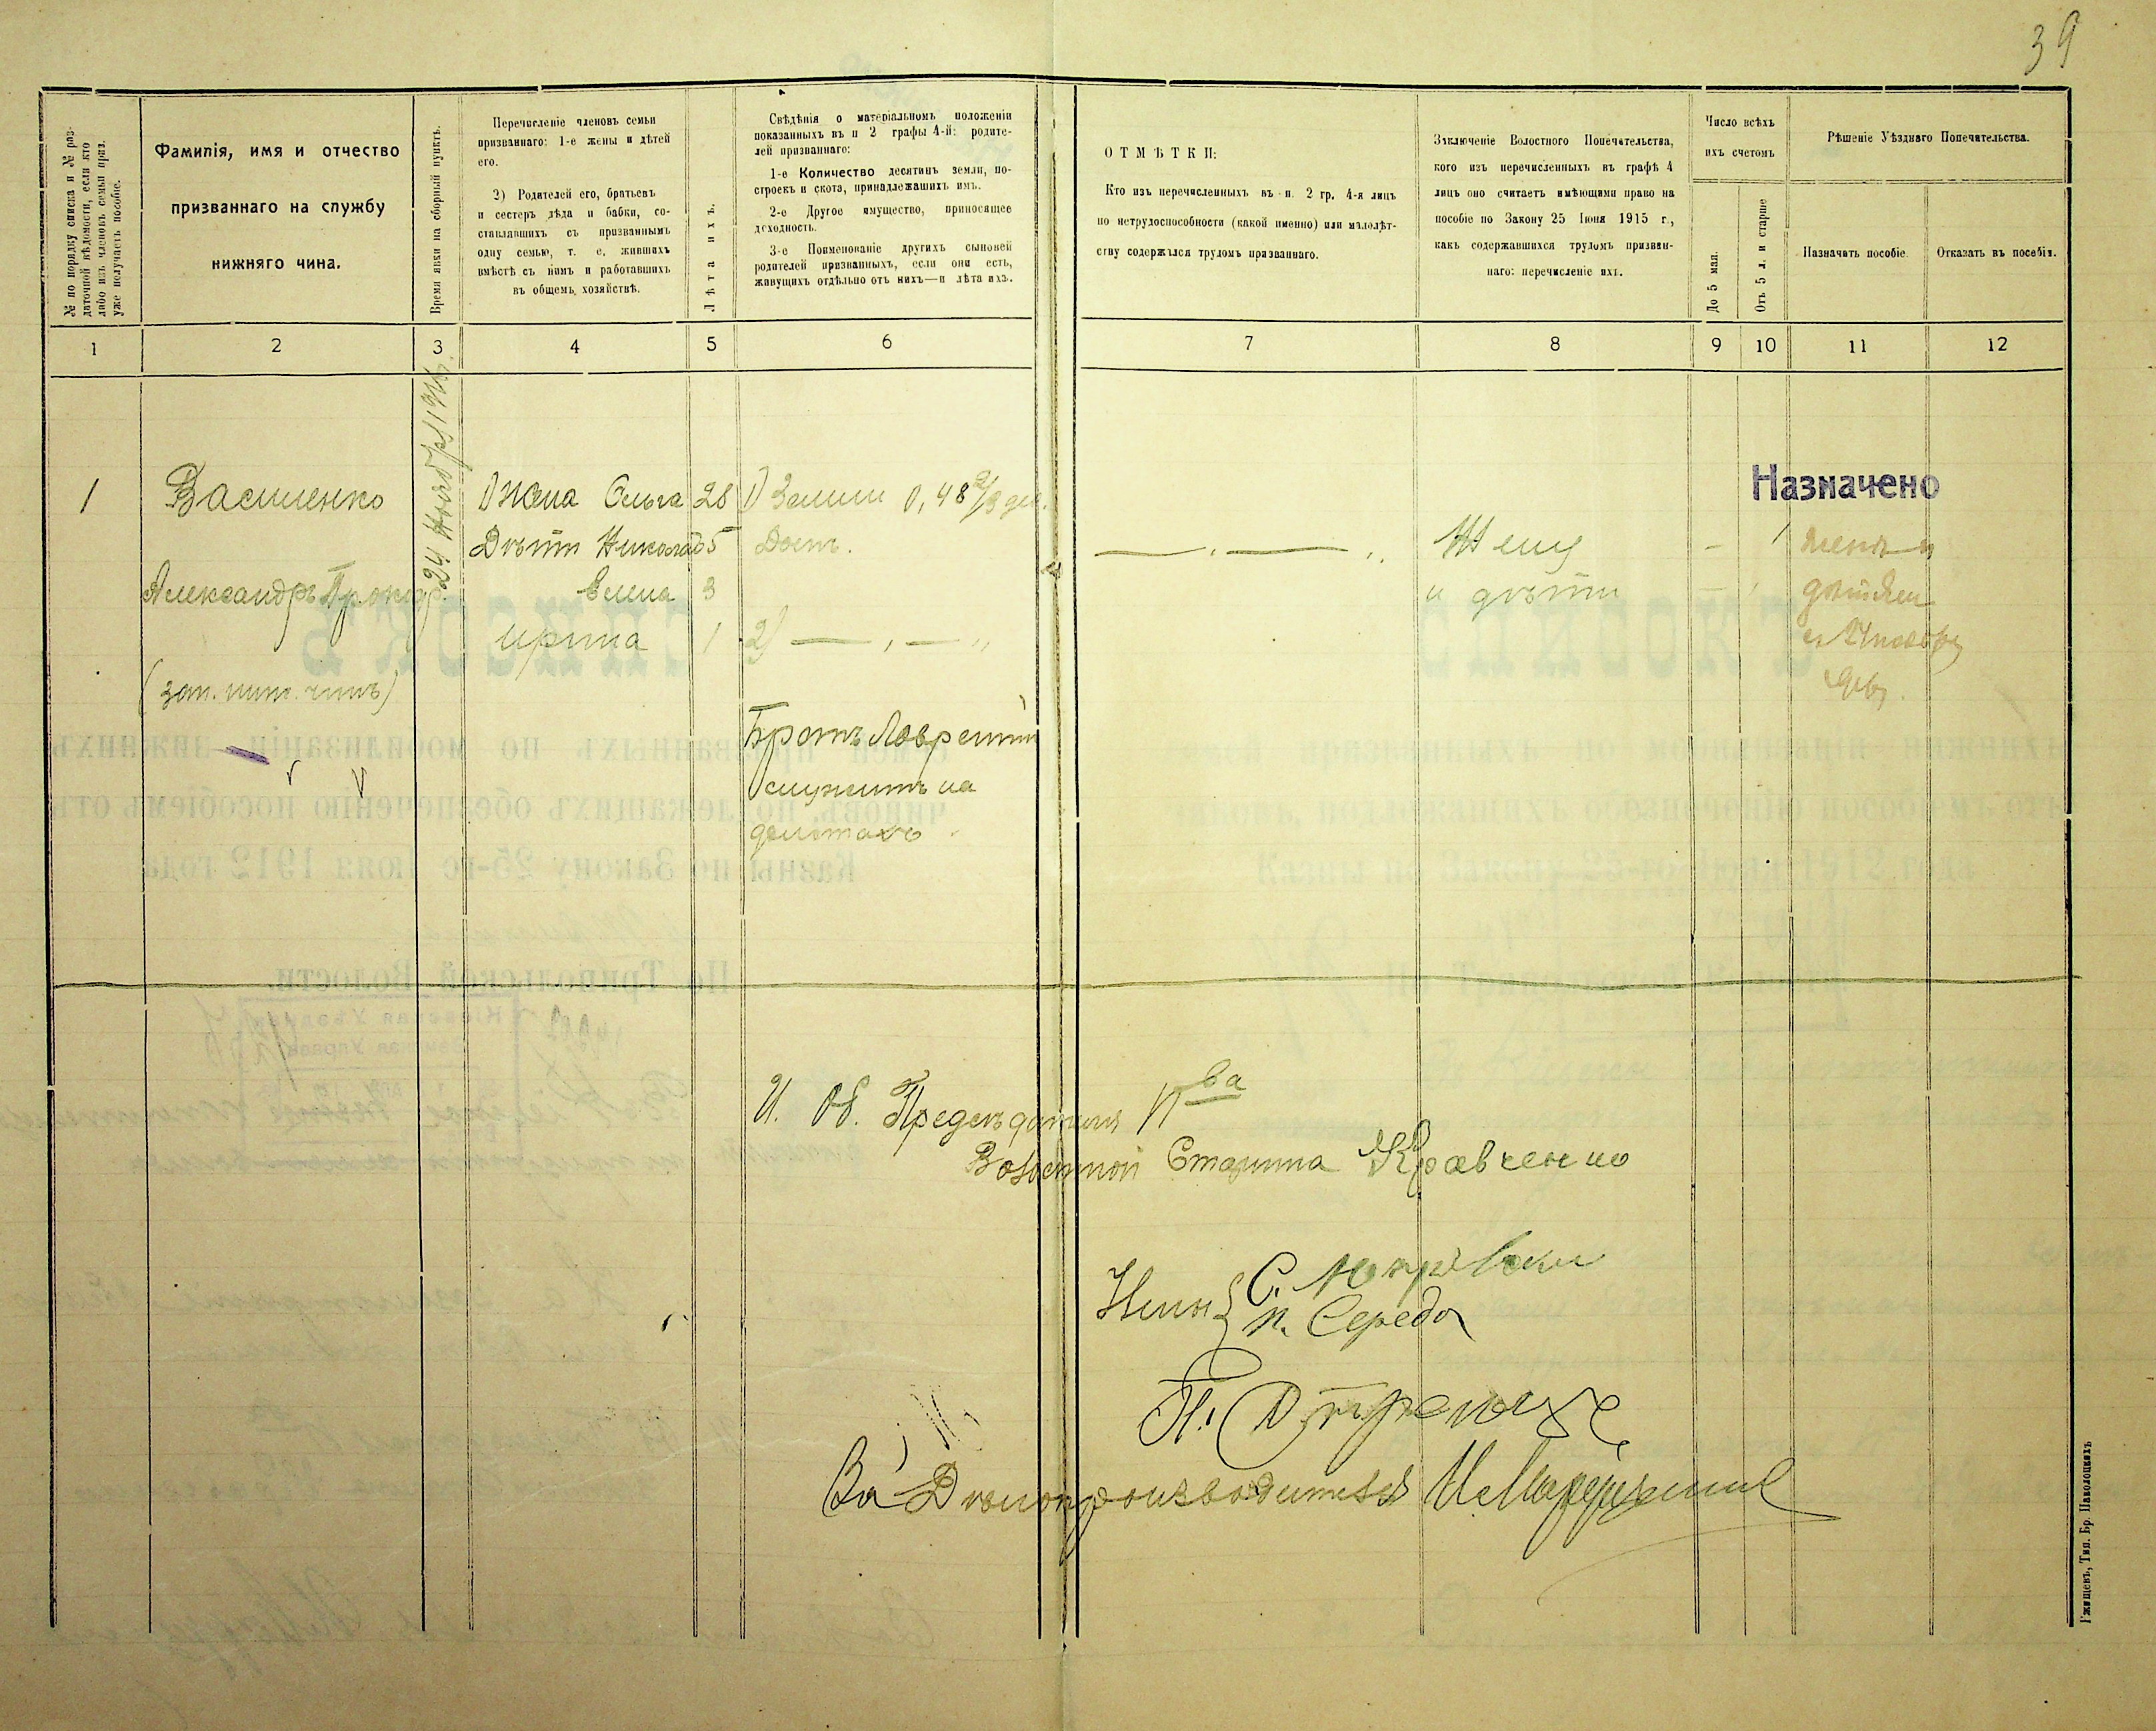 39
№ по порядку списка и № раз-
даточной вѣдомости, если кто
либо изъ членовъ семьи приз.
уже получаетъ пособіе.
Фамилія, имя и отчество
призваннаго на службу
нижняго чина.
Время явки на сборный пунктъ.
Перечисленіе членовъ семьи
призваннаго: 1-е жены и дѣтей
его.
2) Родителей его, братьевъ
и сестеръ дѣда и бабки, со-
ставлявшихъ съ призваннымъ
одну семью, т. е. жившихъ
вмѣстѣ съ нимъ и работавшихъ
въ общемъ, хозяйствѣ.
Лѣта ихъ.
Свѣдѣнія о матеріальномъ положеніи
показанныхъ въ п 2 графы 4-й: родите-
лей призваннаго:
1-е Количество десятинъ земли, по-
строекъ и скота, принадлежашихъ имъ.
2-е Другое имущество, приносящее
доходность.
3-е Поименованіе другихъ сыновей
родителей призванныхъ, если они есть,
живущихъ отдѣльно отъ нихъ—и лѣта ихъ.
ОТМѢТКИ:
Кто изъ перечисленныхъ въ п. 2 гр. 4-я лицъ
по нетрудоспособности (какой именно) или малолѣт-
ству содержался трудомъ призваннаго.
Заключеніе Волостного Попечательства,
кого изъ перечисленныхъ въ графѣ 4
лицъ оно считаетъ имѣющими право на
пособіе по Закону 25 Іюня 1915 г.,
какъ содержавшихся трудомъ призван-
наго: перечисленіе ихъ.
Число всѣхъ
ихъ счетомъ
До 5 мал.
Отъ 5 л. и старше
Рѣшеніе Уѣзднаго Попечительства.
Назначать пособіе.
Отказать въ пособіи.
1 2 3 4 5 6 7 8 9 10 11 12
24 Ноября 1916 г.
1 Василенко 1) Жена Ольга 28 1) Земли 0,48 2/3 дес.
Назначено
Дѣти Николай 5 Дом. Жену – 1 женѣ и
Александръ Прокоф. Елена 3 и дѣти дѣтямъ
Ирина 1 2) — , — „ с 24 ноября
(зап. ниж. чинъ) 1916 г.
Братъ Лаврентій
служитъ на
И. Об. Предсѣдателя П-ва
Волостной Старшина Кравченко
Члены { С.
П. Середа
П.
За Дѣлопроизводителя
Ржищевъ, Тип. Бр. Паволоцкихъ